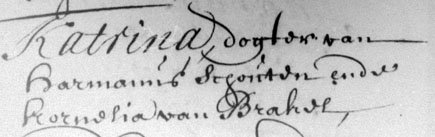 Katrina, dogter van
Harmanus Schouten ende
Kornelia van Brakel,